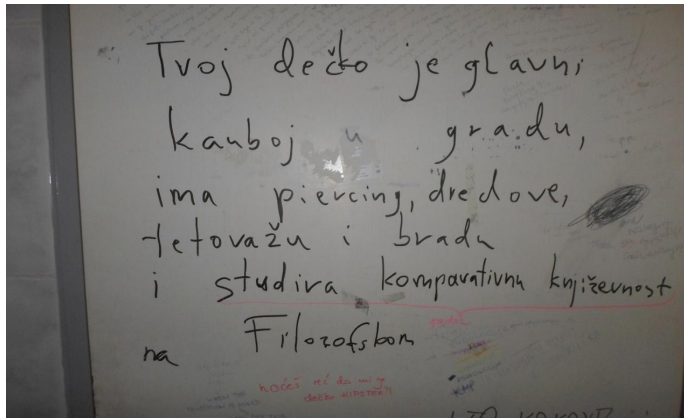 Tvoj dečko je glavni
kauboj u gradu,
ima piercing, dredove,
tetovažu i bradu
i studira komparativnu književnost
na Filozofskom
hoćeš reć da moj
dečko HIPSTER?!